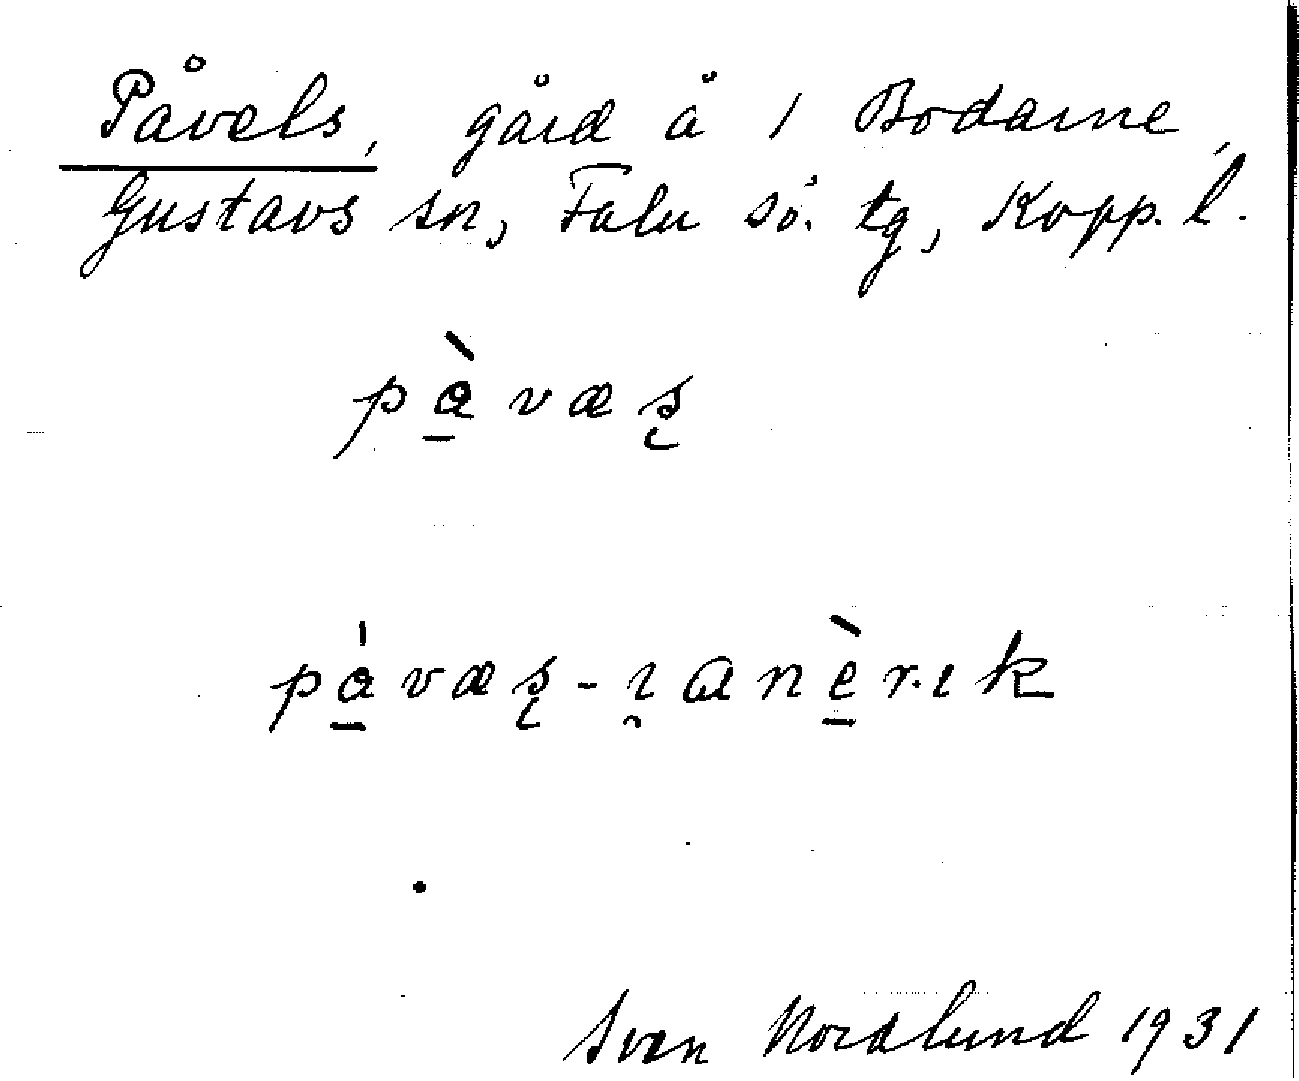 Påvels, gård å 1 Bodarne,
Gustavs sn, Falu sö. tg, Kopp. l.
pàvæʂ
pávæʂ-ı̯anèrık
Sven Nordlund 1931